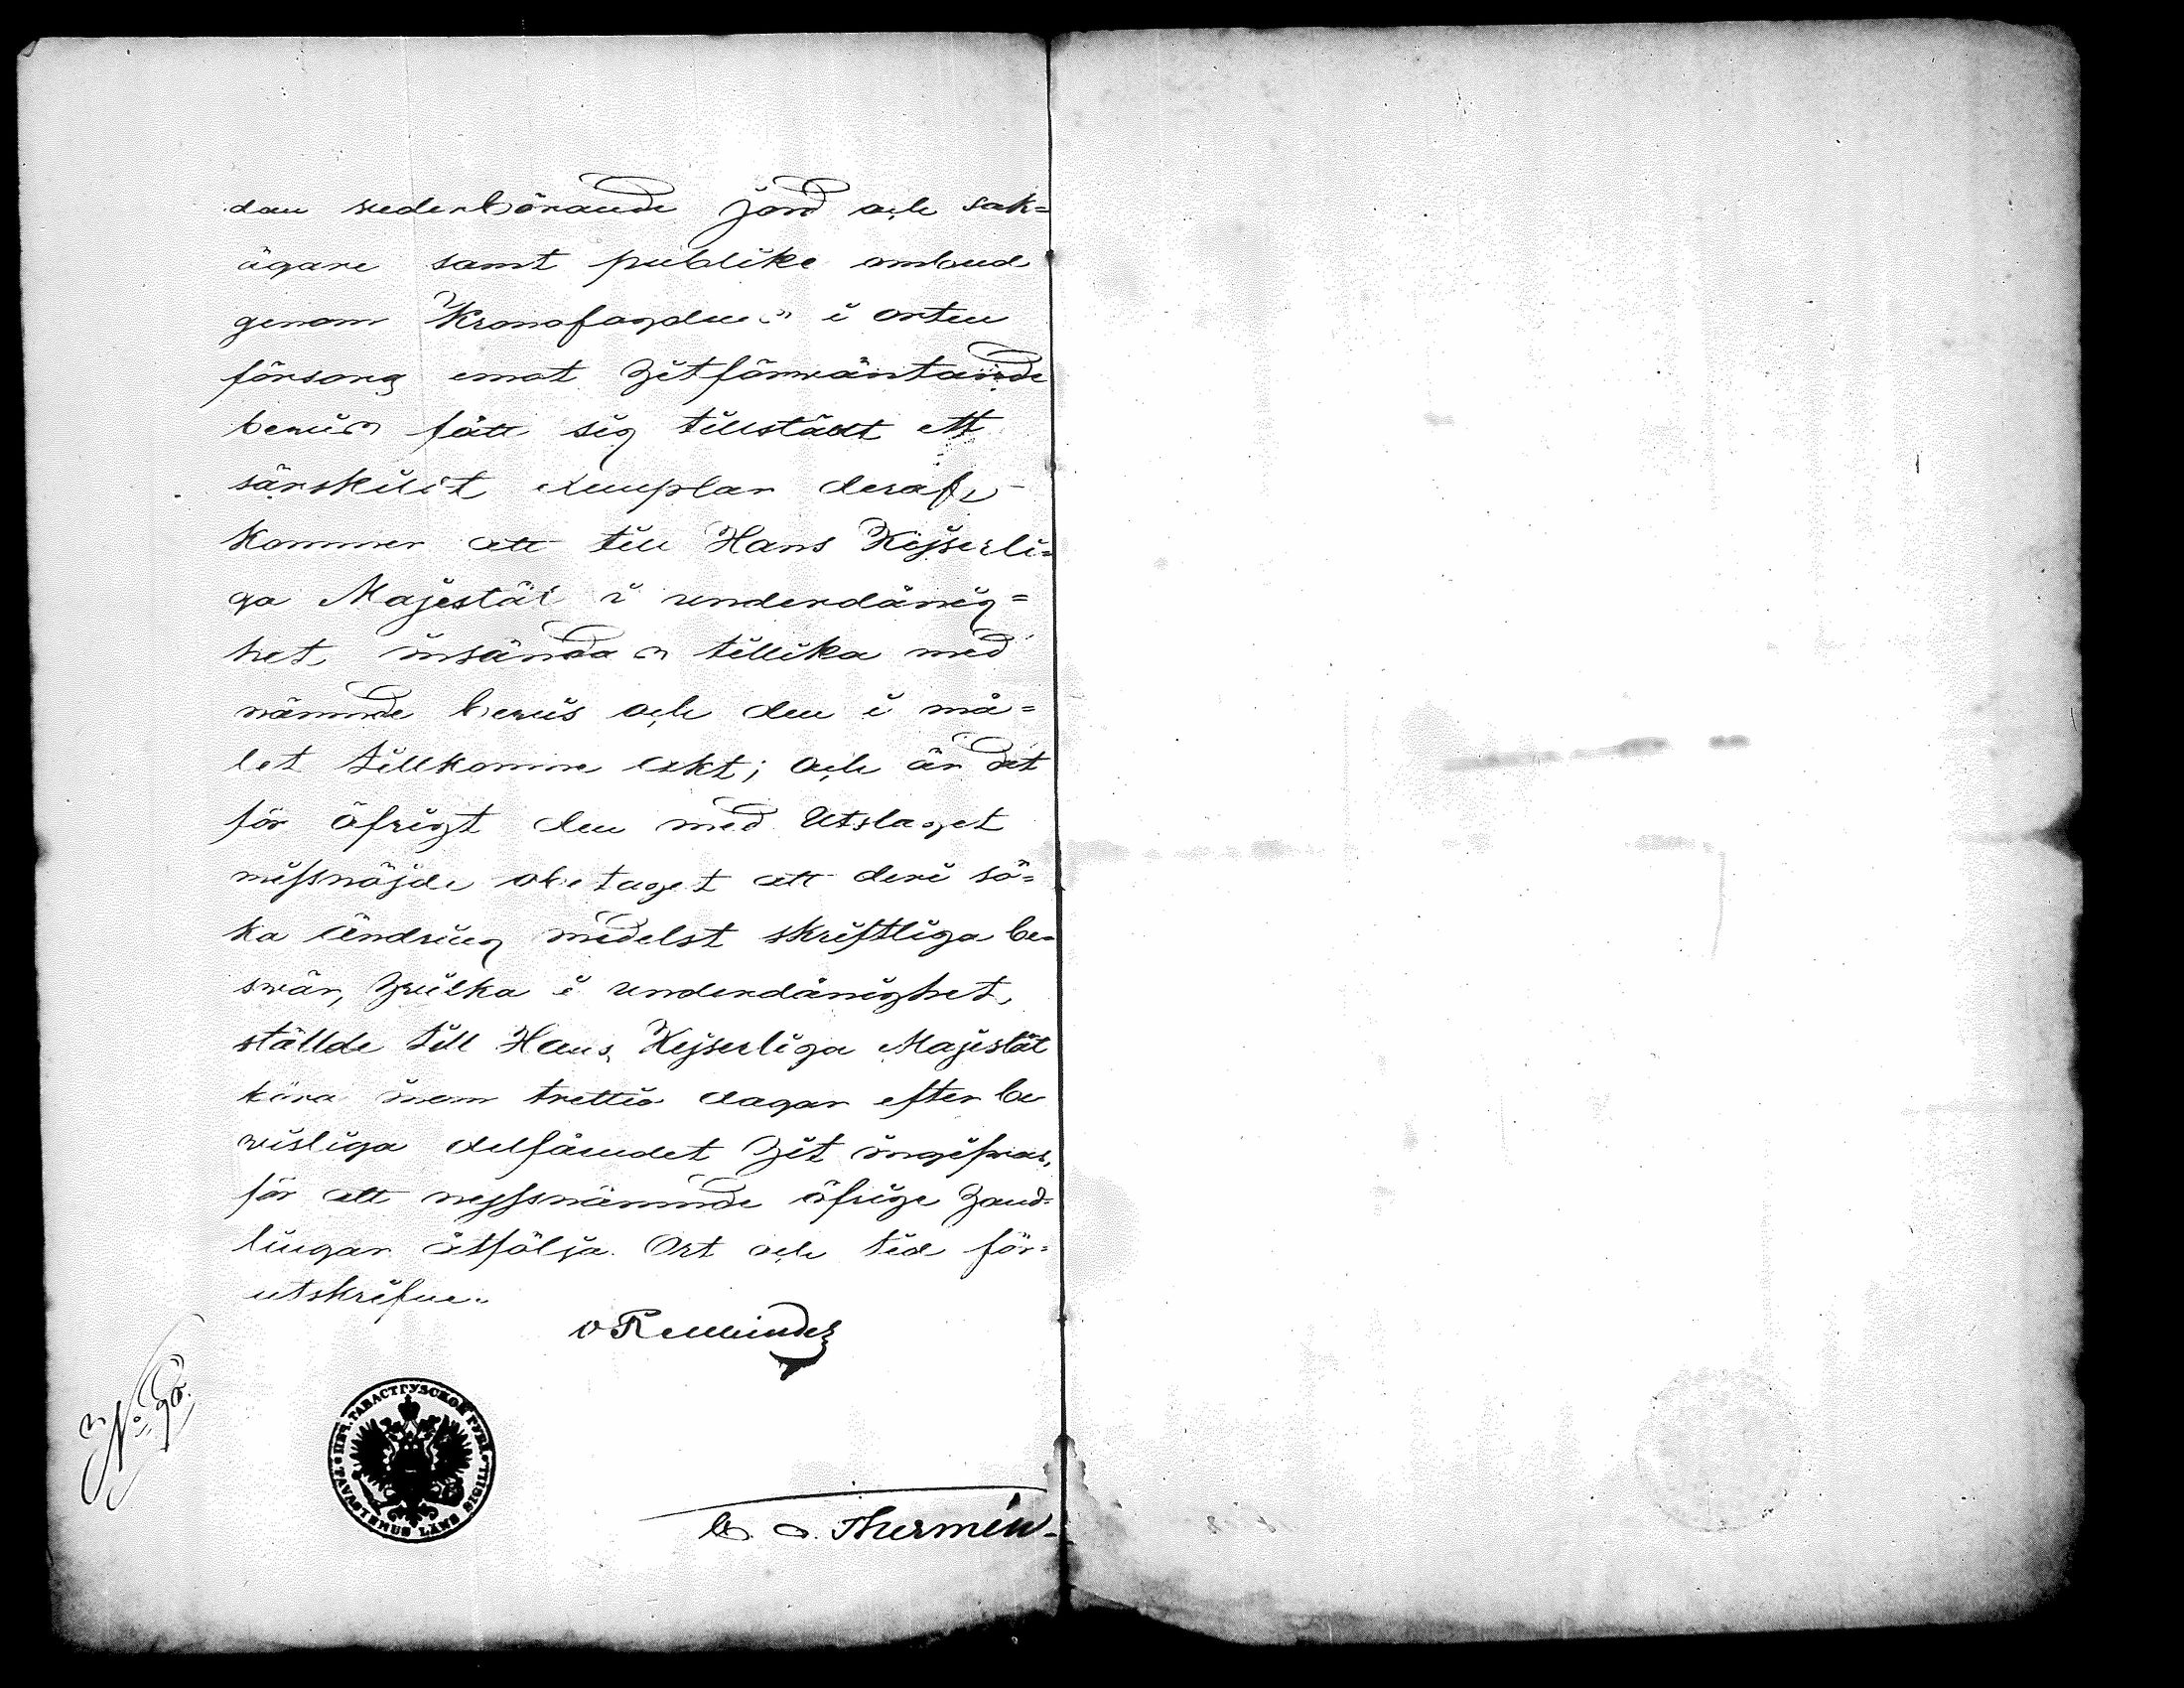 dan wederbörande Jord och sak=
ägare samt publike ombud
genom Kronofogdens i orten
försorg emot hitförwäntande
bewis fått sig tillstäldt ett
särskildt exemplar deraf,
kommer att till Hans Kejserli=
ga Majestät i underdånig=
het insändas tillika med
nämnde bewis och den i må=
let tillkomne akt; och är det
för öfrigt den med Utslaget
missnöjde obetaget att deri sö=
ka ändring medelst skriftliga be=
swär, hwilka i underdånighet,
ställde till Hans Kejserliga Majestät
böra inom trettio dagar efter be
wisliga delfåendet hit ingifwas,
för att nyssnämnde öfrige hand=
lingar åtfölja. Ort och tid för=
utskrifne.
O Rehbinder
No 90.
ПЕЧ. ТАВАСТГУСКОЙ ГУБ. TAVASTEHUS LÄNS SIGILL
C. A. Thermén